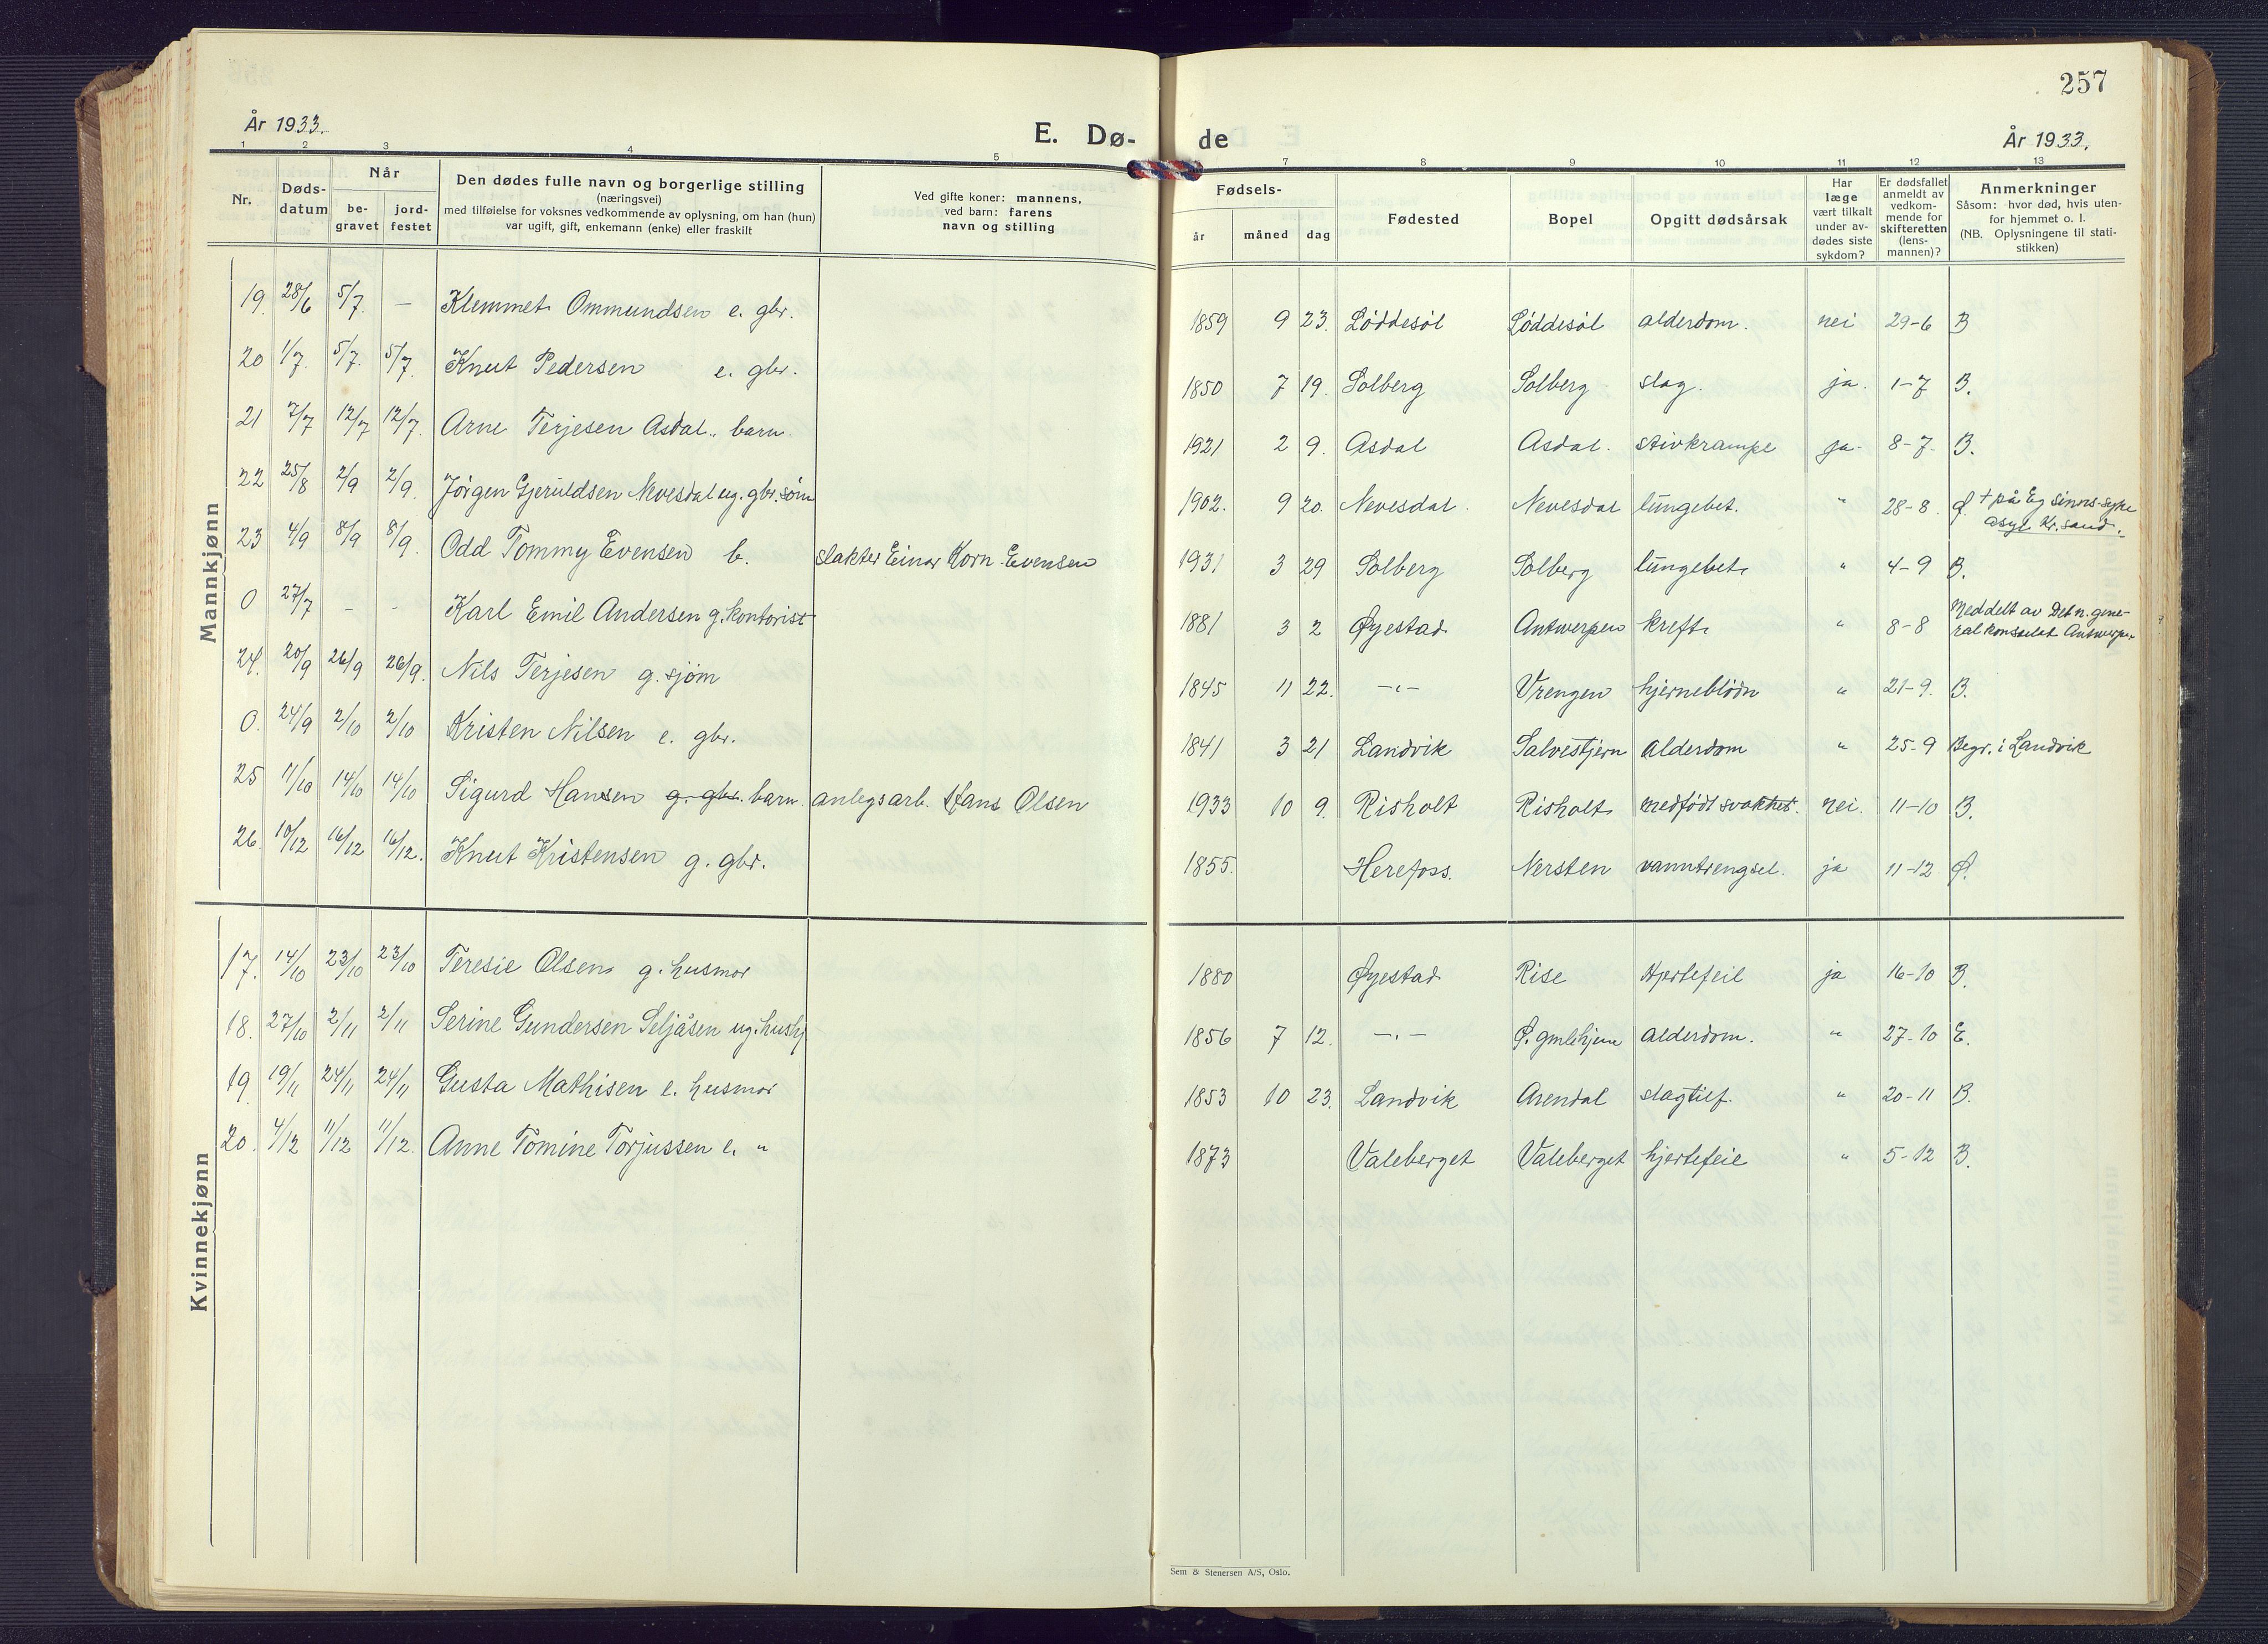 257
År 1933.
E. Dø-
de
År 1933.
1 2 3 4 5 7 8 9 10 11 12 13
Nr.
Døds-
datum
Når
be-
gravet
jord-
festet
Den dødes fulle navn og borgerlige stilling
(næringsvei)
med tilføielse for voksnes vedkommende av oplysning, om han (hun)
var ugift, gift, enkemann (enke) eller fraskilt
Ved gifte koner: mannens,
ved barn: farens
navn og stilling
Fødsels-
år måned dag
Fødested
Bopel
Opgitt dødsårsak
Har
læge
vært tilkalt
under av-
dødes siste
sykdom?
Er dødsfallet
anmeldt av
vedkom-
mende for
skifteretten
(lens-
mannen)?
Anmerkninger
Såsom: hvor død, hvis uten-
for hjemmet o. l.
(NB. Oplysningene til stati-
stikken)
Mannkjønn
19. 28/6 5/7. — Klemmet Ommundsen e. gbr. 1859 9 23. Løddesøl Løddesøl alderdom. nei 29-6 B
20 1/7. 5/7. 5/7. Knut Pedersen e. gbr. 1850 7 19. Solberg Solberg slag. ja. 1-7 B.
21 7/7 12/7 12/7. Arne Terjesen Asdal., barn. 1921 2 9. Asdal Asdal. stivkrampe ja. 8-7. B.
22 25/8 2/9 2/9. Jørgen Gjeruldsen Nevesdal ug. gbr. søm 1902. 9 20. Nevesdal. Nevesdal lungebet. " 28-8. Ø. + på Eg sinns-syke
asyl Kr.sand.
23 4/9 8/9 8/9. Odd Tommy Evensen b. slakter Einar Korn-Evensen 1931 3 29 Solberg Solberg lungebet. " 4-9 B.
0 27/7 - - Karl Emil Andersen g. kontorist 1881 3 2 Øyestad Antwerpen kreft " 8-8 Meddelt av Det n. gene-
ralkonsulat Antwerpen
24. 20/9 26/9 26/9. Nils Terjesen g. sjøm 1845 11 22. —"— Vrengen hjerneblødn " 21-9. B.
0. 24/9 2/10 2/10 Kristen Nilsen e. gbr. 1841 3 21 Landvik Salvestjern Alderdom " 25-9 Begr. i Landvik
25 11/10 14/10 14/10 Sigurd Hansen g. gbr. barn. anlegsarb. Hans Olsen 1933 10 9. Risholt Risholt medfødt svakhet. nei. 11-10 B.
26. 10/12 16/12 16/12. Knut Kristensen g. gbr. 1855. Herefoss. Nersten vanntrengsel. ja 11-12 Ø.
Kvinnekjønn
17. 14/10 23/10 23/10 Teresie Olsen g. husmor 1880 Øyestad Rise Hjertefeil ja 16-10 B.
18. 27/10 2/11 2/11 Serine Gundersen Seljåsen ug. hushj 1856 7 12. —"— Ø. gmlehjem Alderdom. " 27-10 E.
19. 19/11 24/11 24/11 Gusta Mathisen e. husmor 1853 10 23. Landvik Arendal slagtilf. " 20-11 B.
20. 4/12 11/12 11/12. Anne Tomine Torjussen e. " 1873 Valeberget Valeberget hjertefeil " 5-12 B.
Sem & Stenersen A/S, Oslo.